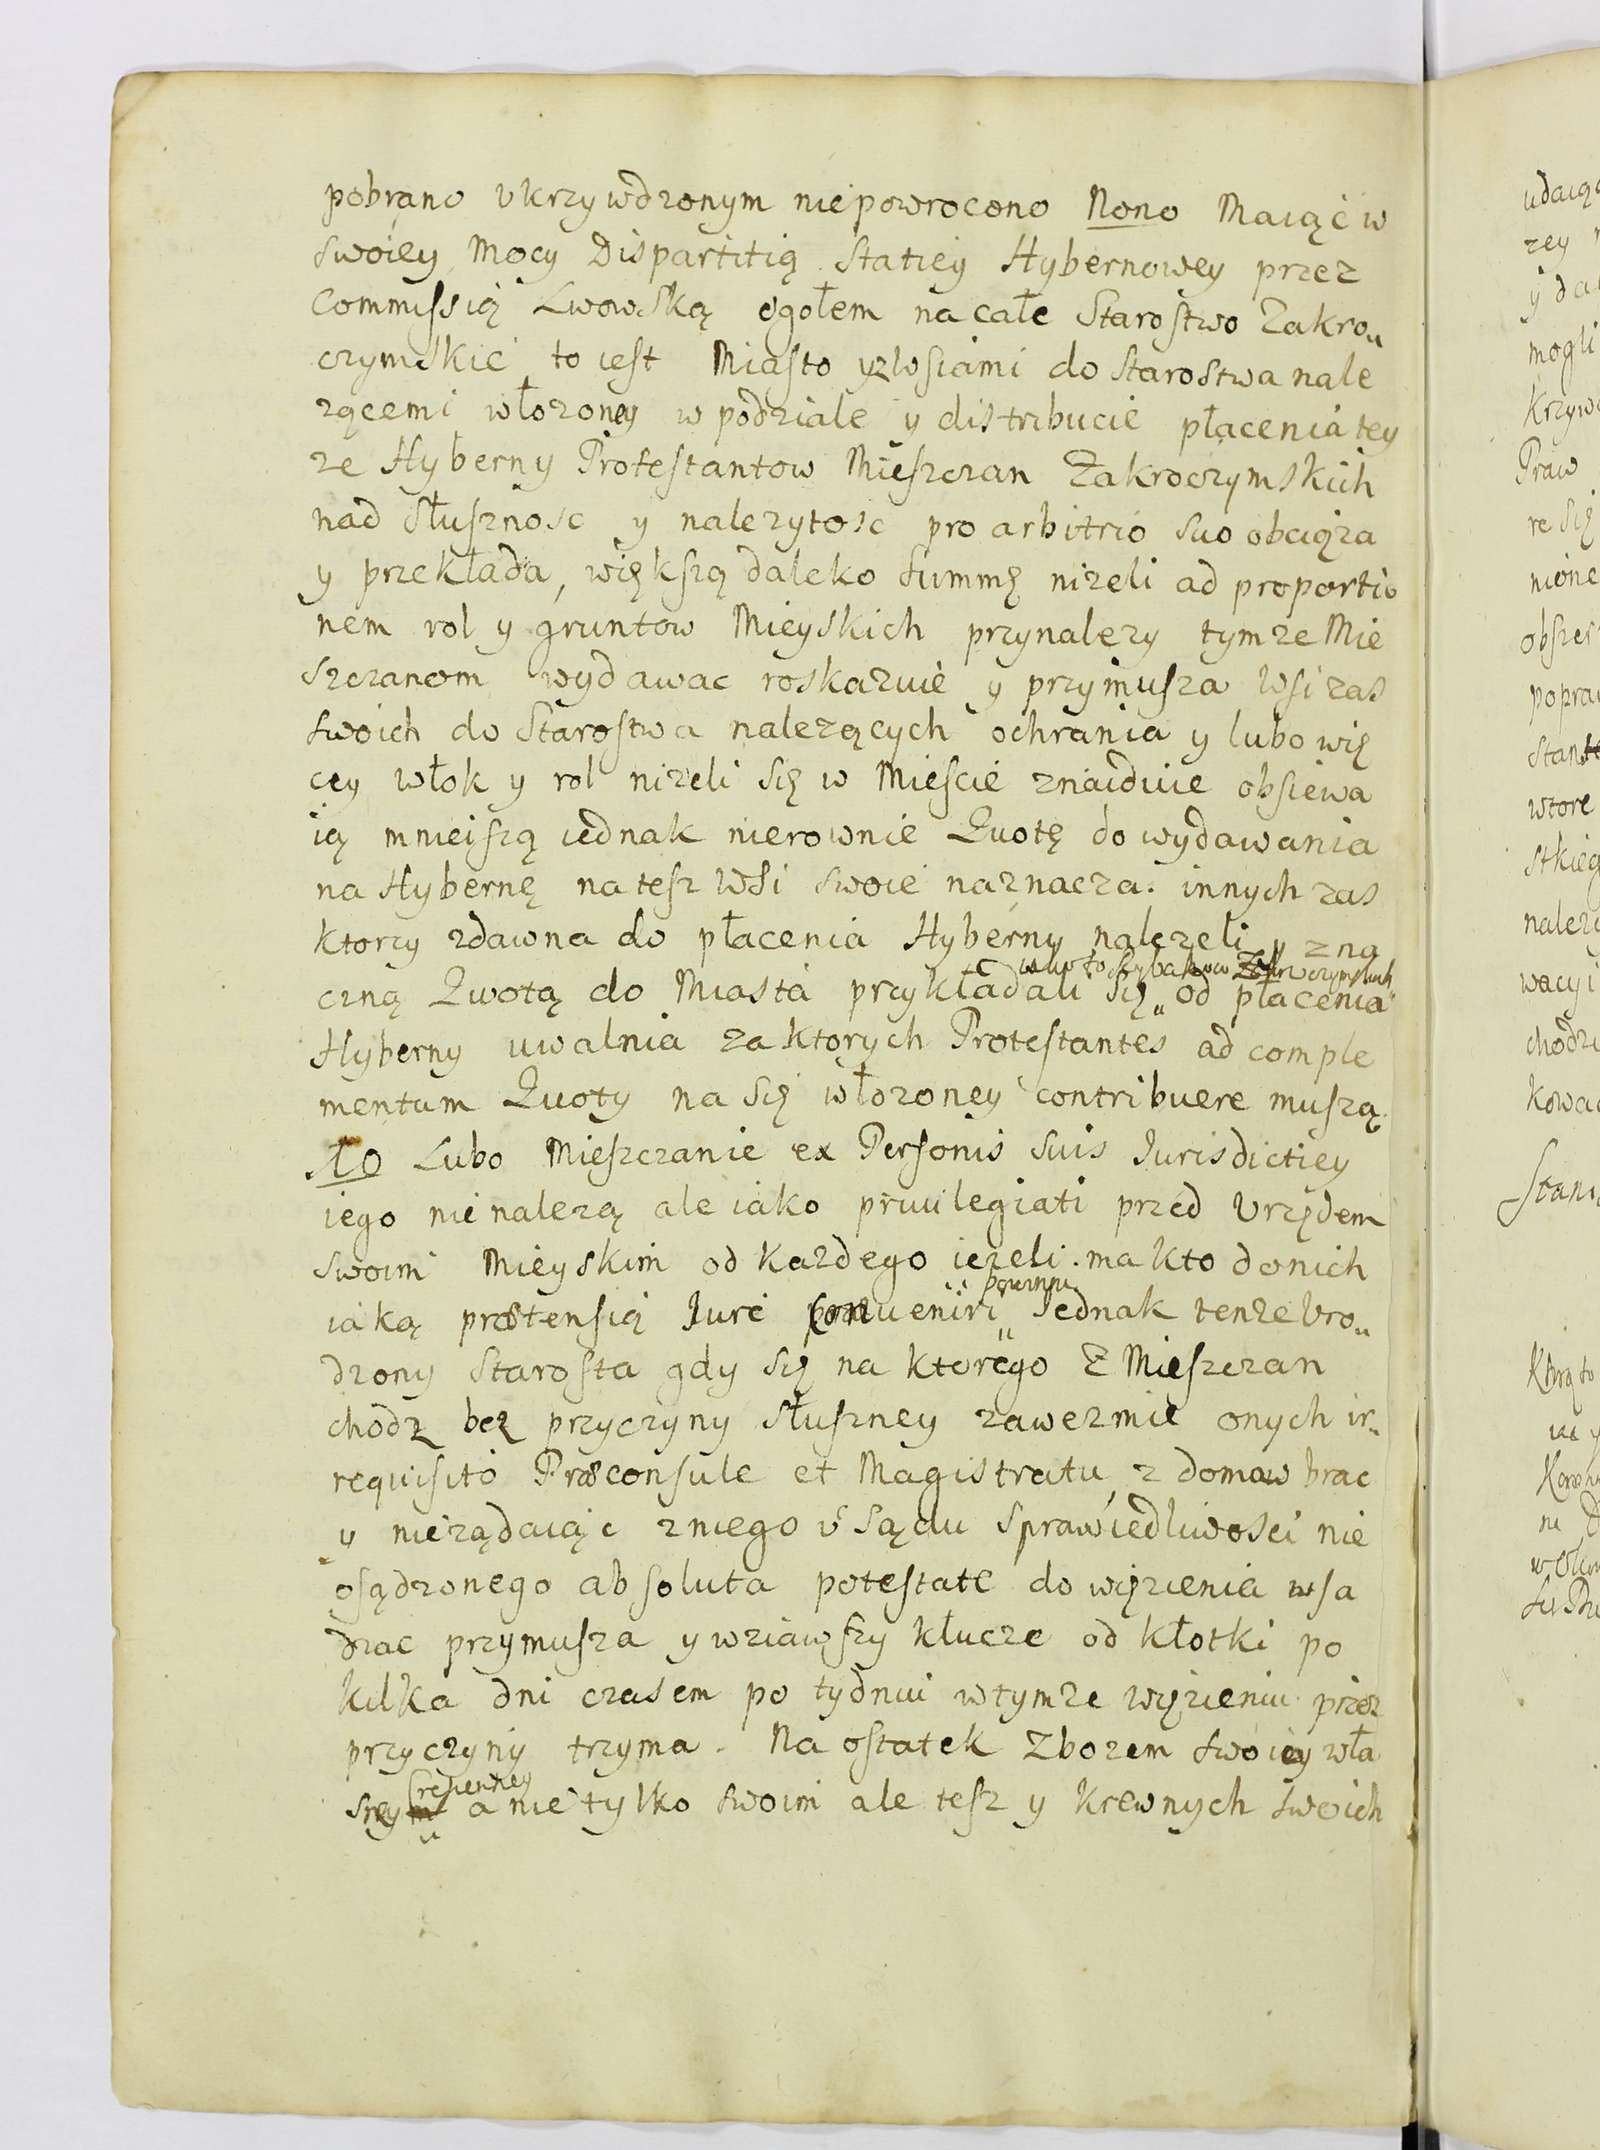 pobrano vkrzywdzonym niepowrocono Nono Maiąc w
swoiey Mocy Dispartitią Statiey Hybernowey przez
Commissią Lwowską ogołem na całe Starostwo Zakro„
czymskie to iest Miasto yzWsiami do Starostwa nale
zącemi włozoney w podziale y distribucie płacenia tey
ze Hyberny Protestantow Mieszczan Zakroczymskich
nad słusznosc y nalezytosc pro arbitrio suo obciąza
y przekłada, większą daleko summę nizeli ad proportio
nem rol y gruntow Mieyskich przynalezy tymze Mie
szczanom wydawac roskazuie y przymusza Wsi zas
swoich do Starostwa nalezących ochrania y lubo wię
cey włok y rol nizeli się w Miescie znaiduie obsiewa
ią mnieiszą iednak nierownie Quotę do wydawania
na Hybernę na tesz Wsi swoie naznacza. innych zas
ktorzy zdawna do płacenia Hyberny nalezeli y zna
czną Qwotą do Miasta przykładali się „ od płacenia
Hyberny uwalnia za ktorych Protestantes ad comple
mentum Quoty na się włozoney contribuere muszą.
10 Lubo Mieszczanie ex Personis suis Jurisdictiey
iego nie nalezą ale iako priuilegiati przed Vrzędem
swoim Mieyskim od kazdego iezeli ma kto donich
iaką prætensią Jure conueniri „ powinni Jednak tenze Vro„
dzony Starosta gdy się na ktorego Z Mieszczan
chodz bez przyczyny słuszney zawezmie onych ir„
requisito Præconsule et Magistratu z domow brac
y nieządaiąc zniego v Sądu sprawiedliwosci nie
osądzonego absoluta potestate do więzienia wsa
dzac przymusza y wziąwszy klucze od kłotki po
kilka dni czasem po tydniu wtymze więzieniu przez
przyczyny trzyma. Na ostatek Zbozem swoiey wła
sney Cresienney a nie tylko swoim ale tesz y krewnych swoich